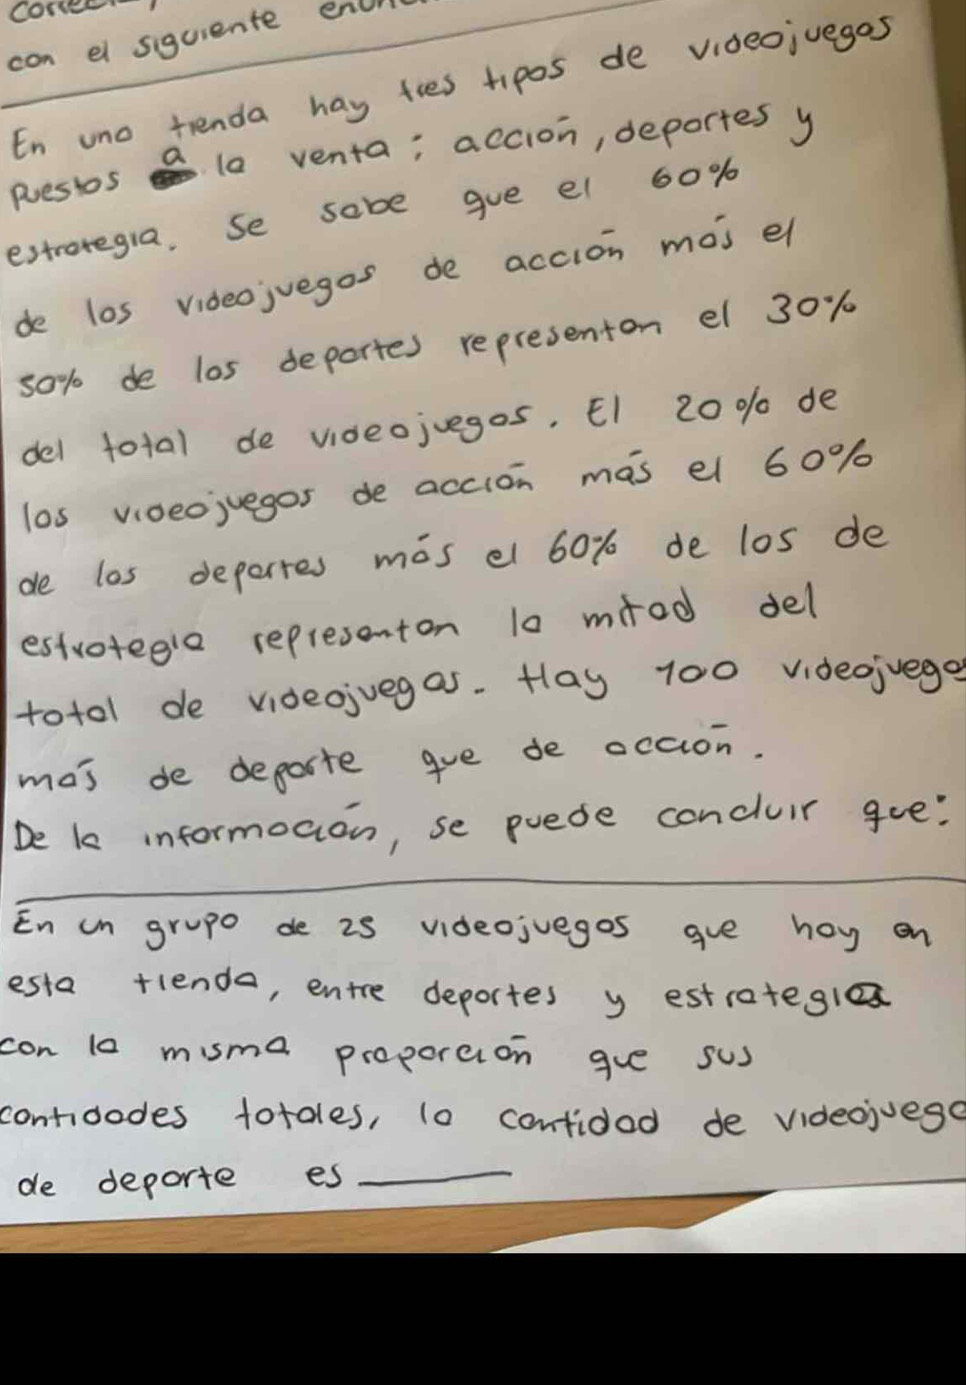 con el siguiente
En una tienda hay tres tipos de videojuegos
puestos a la venta: acción, deportes y
estrategia. Se sabe que el 60%
de los videojuegos de acción más el
50% de los deportes representan el 30%
del total de videojuegos. El 20% de
los videojuegos de acción más el 60%
de los deportes más el 60% de los de
estrategia representan la mitad del
total de videojuegos. Hay 100 videojuego
más de deporte que de acción.
De la información, se puede concluir que:
En un grupo de 25 videojuegos que hay en
esta tienda, entre deportes y estrategia
con la misma proporción que sus
cantidades totales, la cantidad de videojuego
de deporte es ______